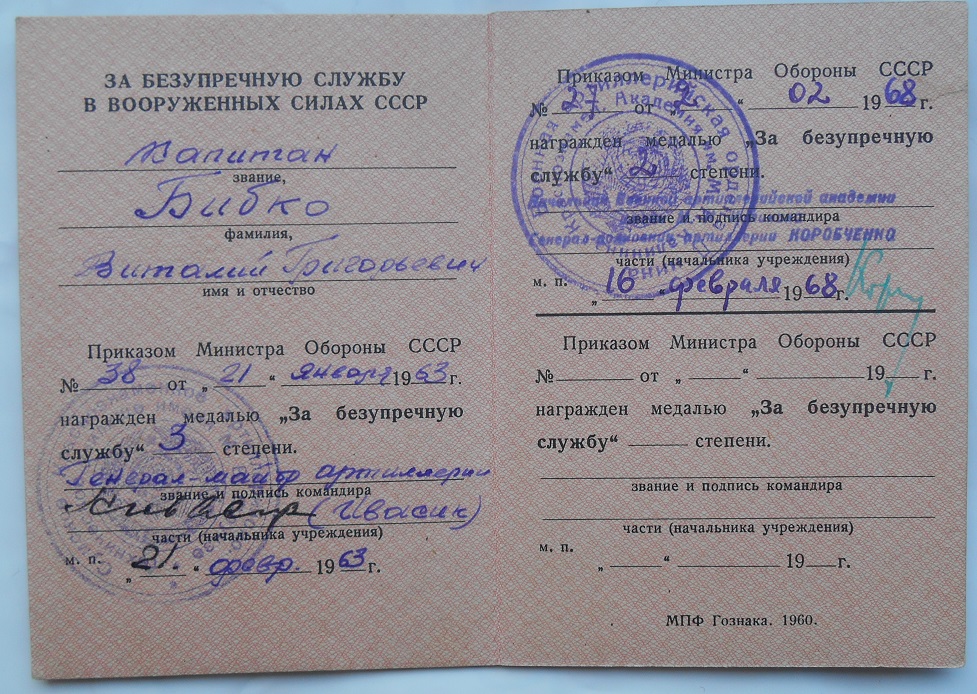 ЗА БЕЗУПРЕЧНУЮ СЛУЖБУ
В ВООРУЖЕННЫХ СИЛАХ СССР
Капитан
звание,
Бибко
фамилия,
Виталий Григорьевич
имя и отчество
Приказом Министра Обороны СССР
№ 38 от „ 21 “ января 1963 г.
награжден медалью „За безупречную
службу“ 3 степени.
Генерал-майор артиллерии
звание и подпись командира
(Ивасик)
части (начальника учреждения)
м. п. „ 21. “ февр. 1963 г.
Приказом Министра Обороны СССР
№ 27 от „ 2 “ 02 1968 г.
награжден медалью „За безупречную
службу“ 2 степени.
Начальник Военной артиллерийской академии
звание и подпись командира
Генерал-полковник артиллерии КОРОБЧЕНКО
части (начальника учреждения)
м. п. „ 16 “ февраля 1968 г.
Приказом Министра Обороны СССР
№ от „ “ 19 г.
награжден медалью „За безупречную
службу“ степени.
звание и подпись командира
части (начальника учреждения)
м. п.
„ “ 19 г.
МПФ Гознака. 1960.